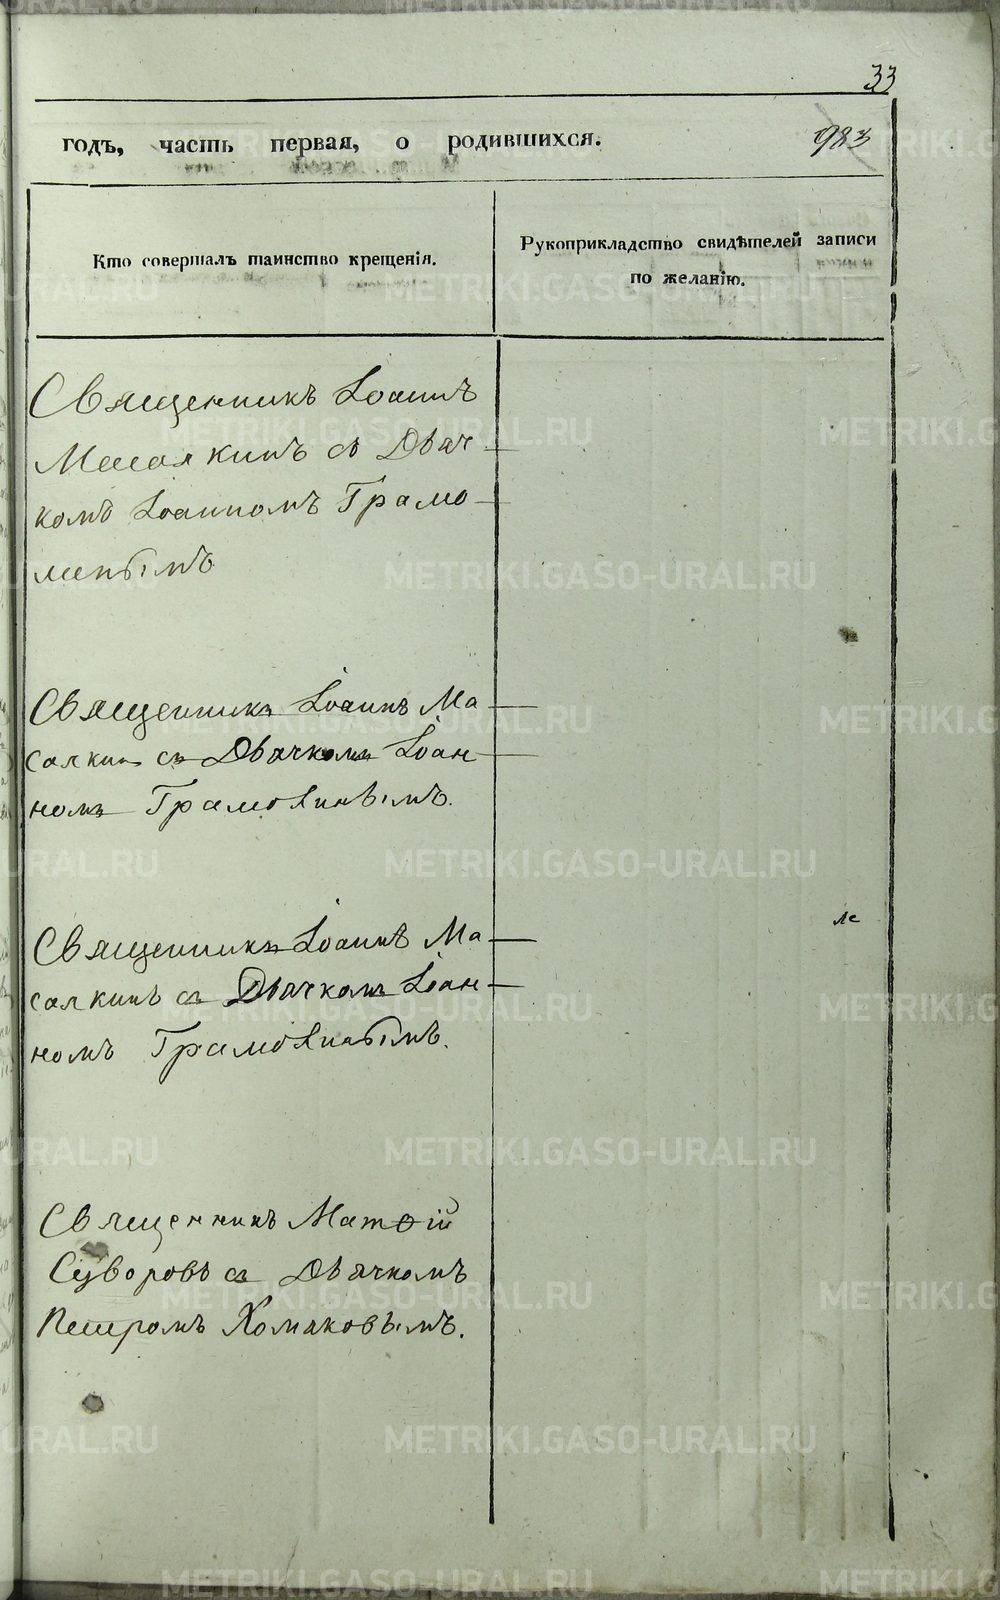 33
годъ, часть первая, о родившихся.
983
Кто совершалъ таинство крещенія.
Рукоприкладство свидѣтелей записи
по желанію.
Священникъ Іоаннъ
съ Дьяч
комъ Іоанномъ
Священникъ Іоаннъ Ма
салкинъ съ Дьячкомъ Іоан
номъ
Священникъ Іоаннъ Ма
салкинъ съ Дьячкомъ Іоан
номъ
Священникъ Матѳій
Суворовъ съ Дьячкомъ
Петромъ Хомяковымъ.
METRIKI.GASO-URAL.RU